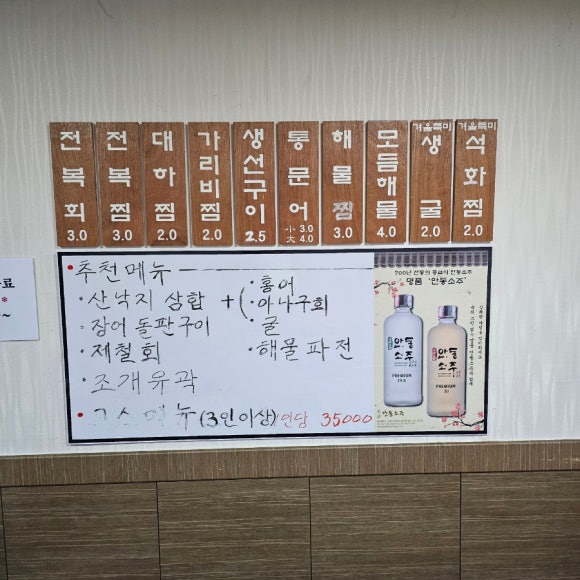 전복회 3.0
전복찜 3.0
대하찜 2.0
가리비찜 2.0
생선구이 2.5
통문어 小 3.0 大 4.0
해물찜 3.0
모듬해물 4.0
겨울특미 생굴 2.0
겨울특미 석화찜 2.0
• 추천메뉴
• 산낙지 삼합 + (
• 장어 돌판구이
• 제철회
• 조개유곽
• 홍어
• 아나구회
• 굴
• 해물파전
• 코스메뉴 (3인이상) 인당 35000
700년 전통의 증류식 안동소주
명품 '안동소주'
안동소주
PREMIUM
안동소주
PREMIUM
안동소주
료